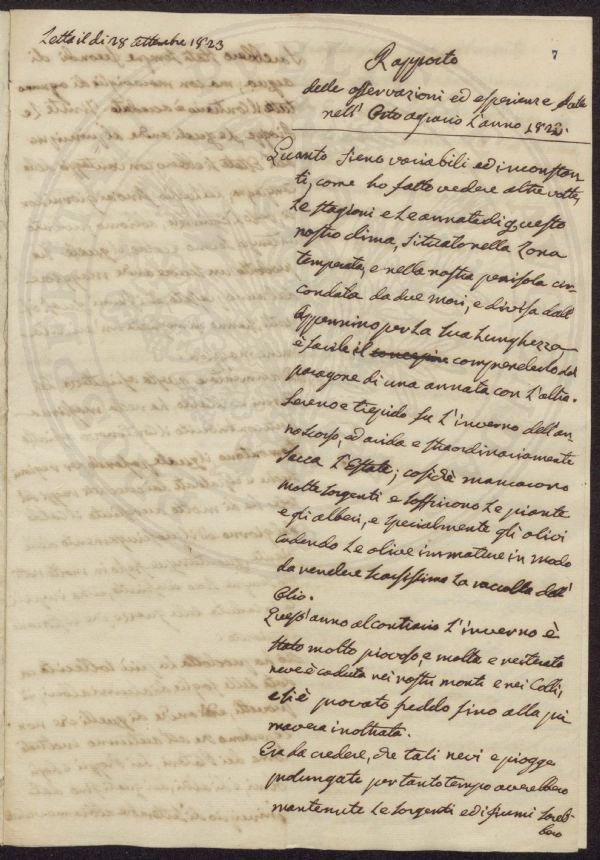 Letto il dì 28 settembre 1823
7
Rapporto
delle osservazioni ed esperienze fatte
nell' Orto agrario l'anno 1823.
Quanto sieno variabili ed inconstan-
ti, come ho fatto vedere altre volte,
le stagioni e le annate di questo
nostro clima, situato nella Zona
temperata, e nella nostra penisola cir-
condata da due mari, e divisa dall'
Appennino per la sua lunghezza
è facile il concepire comprenderlo dal
paragone di una annata con l'altra.
Sereno e tiepido fu l'inverno dell'an-
no scorso, ed arida e straordinariamente
secca l'Estate; cosichè mancarono
molte sorgenti e soffrirono le piante
e gli alberi, e specialmente gli olivi
cadendo le olive immature in modo
da rendere scarsissima la raccolta dell'
Olio.
Quest'anno al contrario l'inverno è
stato molto piovoso, e molta e reiterata
neve è caduta nei nostri monti e nei Colli,
e si è provato freddo fino alla pri
mavera inoltrata.
Era da credere, che tali nevi e piogge
prolungate per tanto tempo averebbero
mantenute le sorgenti ed i fiumi sareb-
bero